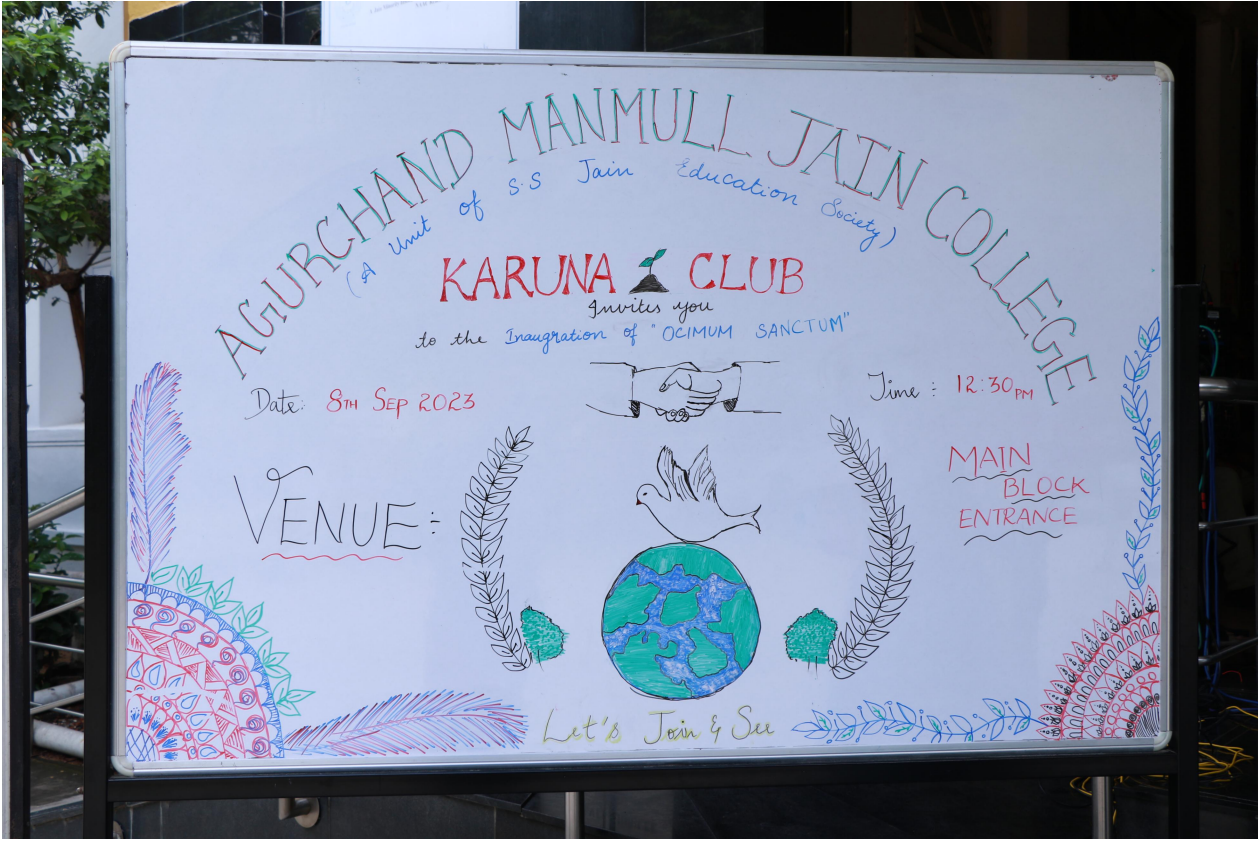 AGURCHAND MANMULL JAIN COLLEGE
(A Unit of S.S Jain Education Society)
KARUNA CLUB
Invites you
to the Inaugration of "OCIMUM SANCTUM"
Date: 8TH SEP 2023
Time: 12:30 PM
VENUE:
MAIN
BLOCK
ENTRANCE
Let's Join & See